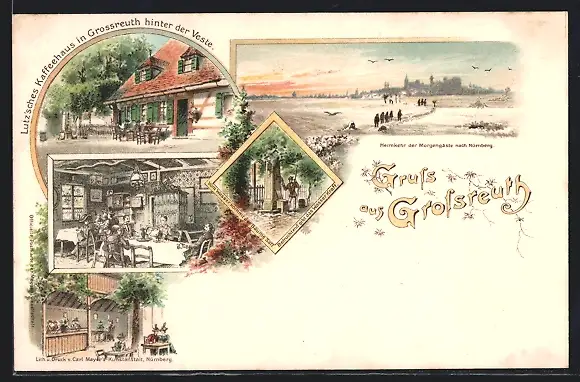 Lutz'sches Kaffeehaus in Grossreuth hinter der Veste.
Heimkehr der Morgengäste nach Nürnberg
Gruß
aus Großreuth
Lith. u. Druck v. Carl Mayer's Kunstanstalt, Nürnberg.